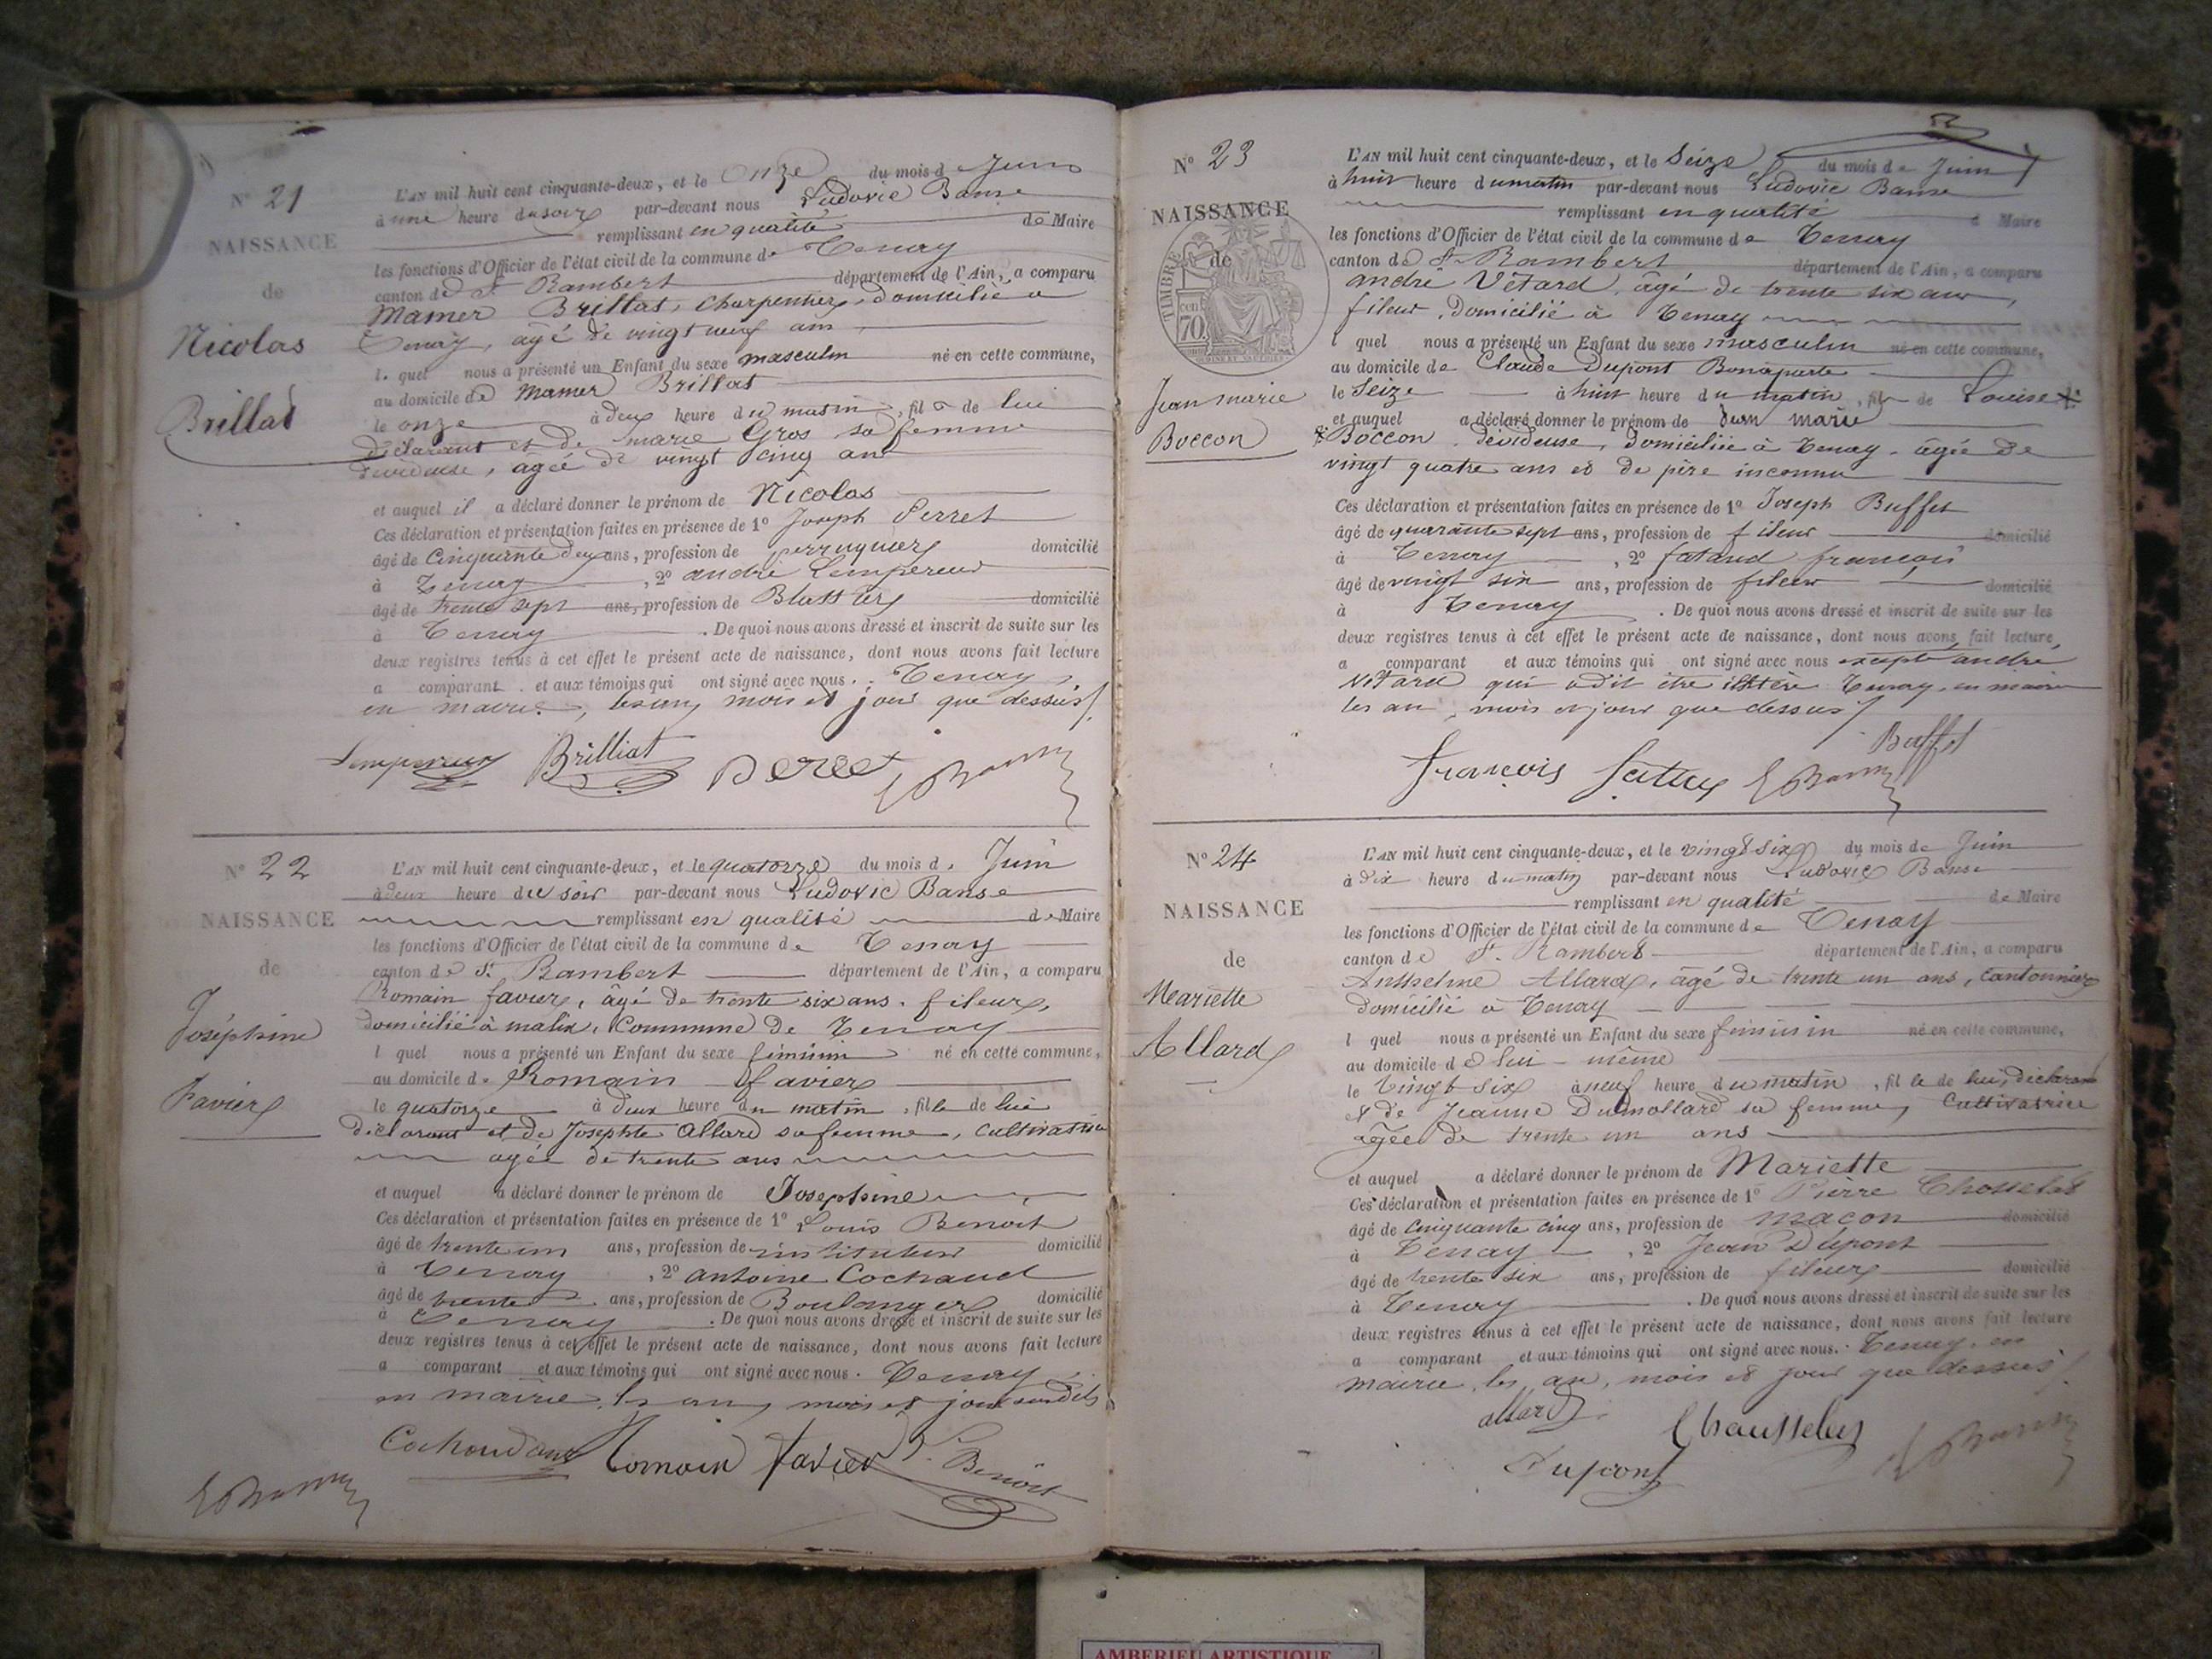 N° 21
NAISSANCE
de
Nicolas
Brillat
L'AN mil huit cent cinquante-deux, et le Onze du mois de Juin
à une heure du soir par-devant nous Ludovic Banse
remplissant en qualité de Maire
les fonctions d'Officier de l'état civil de la commune de Tenay
canton de St Rambert département de l'Ain, a comparu
Mamer Brillat, charpentier, domicilié a
Tenay, âgé de vingt neuf ans
l. quel nous a présenté un Enfant du sexe masculin né en cette commune,
au domicile de Mamer Brillat
le onze à deux heure du matin, fil s de lui
Déclarant et de marie Gros sa femme
Dévideuse, âgée de vingt cinq ans
et auquel il a déclaré donner le prénom de Nicolas
Ces déclaration et présentation faites en présence de 1° Joseph Perret
âgé de Cinquante deux ans, profession de perruquier domicilié
à Tenay, 2° andré Lempereur
âgé de trente sept ans, profession de domicilié
à Tenay. De quoi nous avons dressé et inscrit de suite sur les
deux registres tenus à cet effet le présent acte de naissance, dont nous avons fait lecture
a comparant et aux témoins qui ont signé avec nous. Tenay,
en mairie, les an, mois et jour que dessus/.
Lempereur Brilliat Peret L Banse
N° 22
NAISSANCE
de
Joséphine
Favier
L'AN mil huit cent cinquante-deux, et le quatorze du mois d. Juin
à deux heure du soir par-devant nous Ludovic Banse
remplissant en qualité de Maire
les fonctions d'Officier de l'état civil de la commune de Tenay
canton de St Rambert département de l'Ain, a comparu
Romain favier, âgé de trente six ans. fileur,
domicilié à malix, Commune de Tenay
l quel nous a présenté un Enfant du sexe féminin né en cette commune,
au domicile d. Romain favier
le quatorze à deux heure du matin, fille de lui
déclarant et de Josephte Allard sa femme, cultivatrice
agée de trente ans
et auquel a déclaré donner le prénom de Josephine
Ces déclaration et présentation faites en présence de 1° Louis Benoit
âgé de trente un ans, profession de instituteur domicilié
à Tenay, 2° antoine Cochaud
âgé de trente ans, profession de Boulanger domicilié
à Tenay. De quoi nous avons dressé et inscrit de suite sur les
deux registres tenus à cet effet le présent acte de naissance, dont nous avons fait lecture
a comparant et aux témoins qui ont signé avec nous. Tenay,
en mairie, les an, mois et jour susdits
Romain favier L. Benoit
L Banse
N° 23
NAISSANCE
de
TIMBRE
70
Jean marie
Boccon
L'AN mil huit cent cinquante-deux, et le Seize du mois de Juin
à huit heure du matin par-devant nous Ludovic Banse
remplissant en qualité d Maire
les fonctions d'Officier de l'état civil de la commune de Tenay
canton de St Rambert département de l'Ain, a comparu
andré Vétard, âgé de trente six ans,
fileur, Domicilié à Tenay
l quel nous a présenté un Enfant du sexe masculin né en cette commune,
au domicile de Claude Dupont Bonaparte
le Seize à huit heure du matin, fils de Louise
et auquel a déclaré donner le prénom de Jean marie
Boccon, dévideuse, domiciliée à Tenay. âgée de
vingt quatre ans et de père inconnu
Ces déclaration et présentation faites en présence de 1° Joseph Buffet
âgé de quarante sept ans, profession de fileur domicilié
à Tenay, 2° fataud françois
âgé de vingt six ans, profession de fileur domicilié
à Tenay. De quoi nous avons dressé et inscrit de suite sur les
deux registres tenus à cet effet le présent acte de naissance, dont nous avons fait lecture
a comparant et aux témoins qui ont signé avec nous excepté andré
Vétard qui a dit être illétéré Tenay, en mairie
les an, mois et jour que dessus/
Buffet
françois L Banse
N° 24
NAISSANCE
de
Mariette
Allard
L'AN mil huit cent cinquante-deux, et le vingt six du mois de Juin
à dix heure du matin par-devant nous Ludovic Banse
remplissant en qualité de Maire
les fonctions d'Officier de l'état civil de la commune de Tenay
canton de St. Rambert département de l'Ain, a comparu
Anthelme Allard, âgé de trente un ans, cantonnier
Domicilié à Tenay
l quel nous a présenté un Enfant du sexe féminin né en cette commune,
au domicile de lui-même
le Vingt six à neuf heure du matin, fil le de lui, déclarant
et de Jeanne Dumollard sa femme, Cultivatrice
agée de trente un ans
et auquel a déclaré donner le prénom de Mariette
Ces déclaration et présentation faites en présence de 1° Pierre Chosselat
âgé de Cinquante cinq ans, profession de maçon domicilié
à Tenay, 2° Jean Dupont
âgé de trente six ans, profession de fileur domicilié
à Tenay. De quoi nous avons dressé et inscrit de suite sur les
deux registres tenus à cet effet le présent acte de naissance, dont nous avons fait lecture
a comparant et aux témoins qui ont signé avec nous. Tenay, en
mairie, les an, mois et jour que dessus/.
allard Chausselat L Banse
Dupont
AMBERIEU ARTISTIQUE